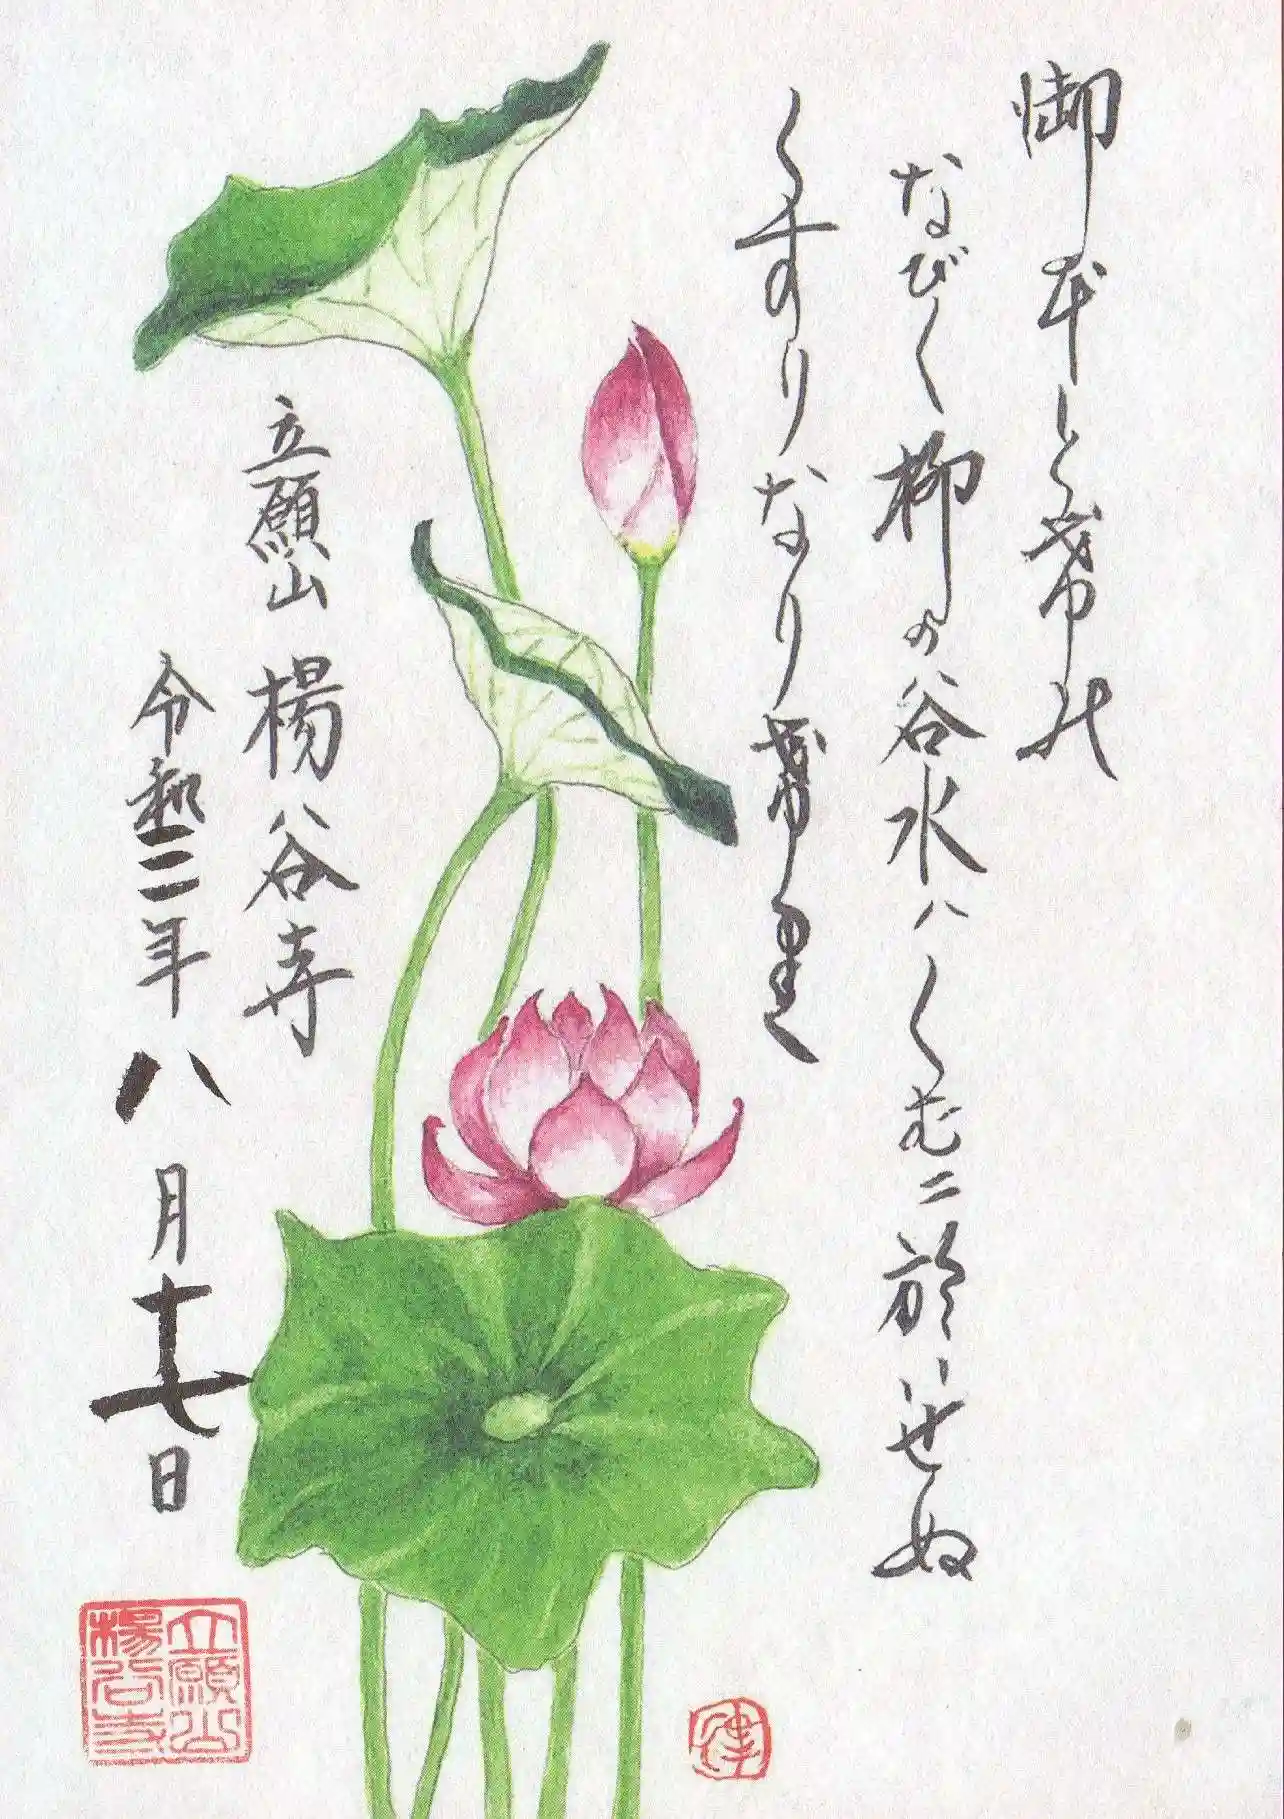 御本と希能
なびく柳の谷水ハくむ二於いせぬ
くすりなり希里
立願山 楊谷寺
令和三年八月十七日
立願山
楊谷寺